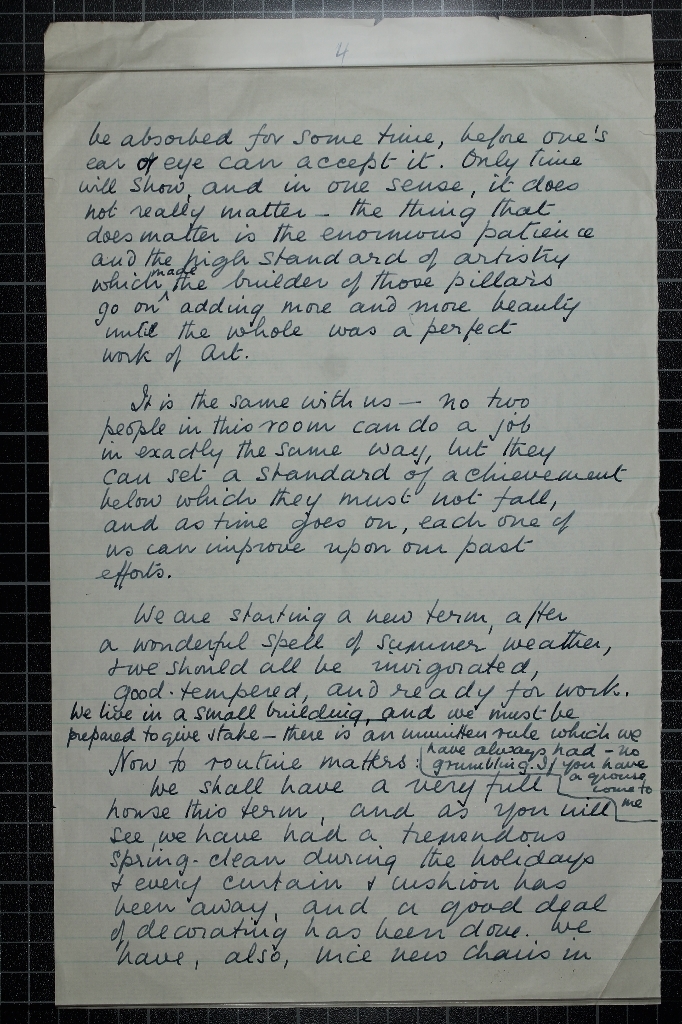 4
be absorbed for some time, before one's
ear or eye can accept it. Only time
will show, and in one sense, it does
not really matter – the thing that
does matter is the enormous patience
and the high standard of artistry
which made the builder of those pillars
go on adding more and more beauty
until the whole was a perfect
work of Art.
It is the same with us – no two
people in this room can do a job
in exactly the same way, but they
can set a standard of achievement
below which they must not fall,
and as time goes on, each one of
us can improve upon our past
efforts.
We are starting a new term, after
a wonderful spell of summer weather,
& we should all be invigorated,
good-tempered, and ready for work.
We live in a small building, and we must be
prepared to give & take – there is an unwritten rule which we
have always had – no
grumbling. If you have
a grouse
come to
me
Now to routine matters:
We shall have a very full
house this term, and as you will
see, we have had a tremendous
spring-clean during the holidays
& every curtain & cushion has
been away, and a good deal
of decorating has been done. We
have, also, nice new chairs in